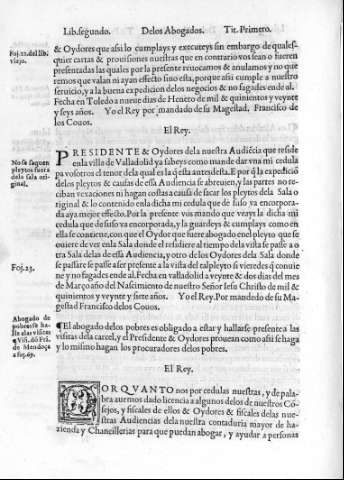 Lib.segundo. Delos Abogados. Tit. Primero.
Foj.22.del lib. viejo.
& Oydores que assi lo cumplays y executeys sin embargo de quales-
quier cartas & prouisiones nuestras que en contrario vos sean o fueren
presentadas las quales por la presente reuocamos & anulamos y no que
remos que valan ni ayan effecto sino esta, porque assi cumple a nuestro
seruicio, y a la buena expedicion delos negocios & no fagades ende al.
Fecha en Toledo a nueue dias de Henero de mil & quinientos y veynte
y seys años. Yo el Rey por mandado de su Magestad, Francisco de
los Couos.
El Rey.
No se saquen pleytos fuera dela sala original.
PRESIDENTE & Oydores dela nuestra Audiēcia que reside
enla villa de Valladolid ya sabeys como mande dar vna mi cedula
pa vosotros el tenor dela qual es la q̄ esta antes desta. E por q̄ la expediciō
delos pleytos & causas de essa Audiencia se abreuien, y las partes no re-
ciban vexaciones ni hagan costas a causa de sacar los pleytos dela Sala o
riginal & lo contenido en la dicha mi cedula que de suso va encorpora-
da aya mejor effecto. Por la presente vos mando que veays la dicha mi
cedula que de suso va encorporada, y la guardeys & cumplays como en
ella se contiene, con que el Oydor que fuere abogado enel pleyto que se
ouiere de ver enla Sala donde el residiere al tiempo dela vista se passe a o
tra Sala delas de essa Audiencia, y otro delos Oydores dela Sala donde
se passare se passe a ser presente a la vista del talpleyto si vieredes q̄ conuie
Foj.23.
ne y no fagades ende al. Fecha en valladolid a veynte & dos dias del mes
de Março año del Nascimiento de nuestro Señor Iesu Christo de mil &
quinientos y veynte y siete años. Yo el Rey. Por mandedo de su Ma-
gesta d Francisco delos Couos.
Abogado de pobres se halle alas visitas
¶ Visi. dō Frā. de Mendoça a foj.69.
¶El abogado delos pobres es obligado a estar y hallarse presente a las
visitas dela carcel, y el Presidente & Oydores prouean como assi se haga
y lo mismo hagan los procuradores delos pobres.
El Rey.
PORQVANTO nos por cedulas nuestras, y de pala-
bra auemos dado licencia a algunos delos de nuestros Cō-
sejos, y fiscales de ellos & Oydores & fiscales delas nue-
stras Audiencias dela nuestra contaduria mayor de ha-
zienda y Chancillerias para que puedan abogar, y ayudar a personas